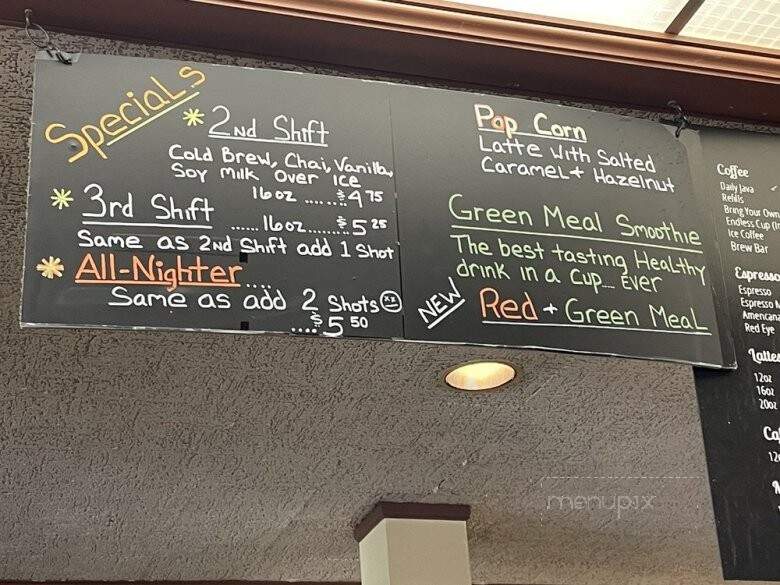 Specials
* 2nd Shift
Cold Brew, Chai, Vanilla,
Soy Milk Over Ice
16oz ...... $4 75
* 3rd Shift
...... 16oz ........ $5 25
Same as 2nd Shift add 1 Shot
* All-Nighter....
Same as add 2 Shots
.... $5 50
Pop Corn
Latte With Salted
Caramel + Hazelnut
Green Meal Smoothie
The best tasting Healthy
drink in a cup.... Ever
NEW Red + Green Meal
Coffee
Daily Java
Refills
Bring Your Own
Endless Cup
Ice Coffee
Brew Bar
Espresso
Espresso
Espresso
Americano
Red Eye
Lattes
12oz
16oz
20oz
menupix